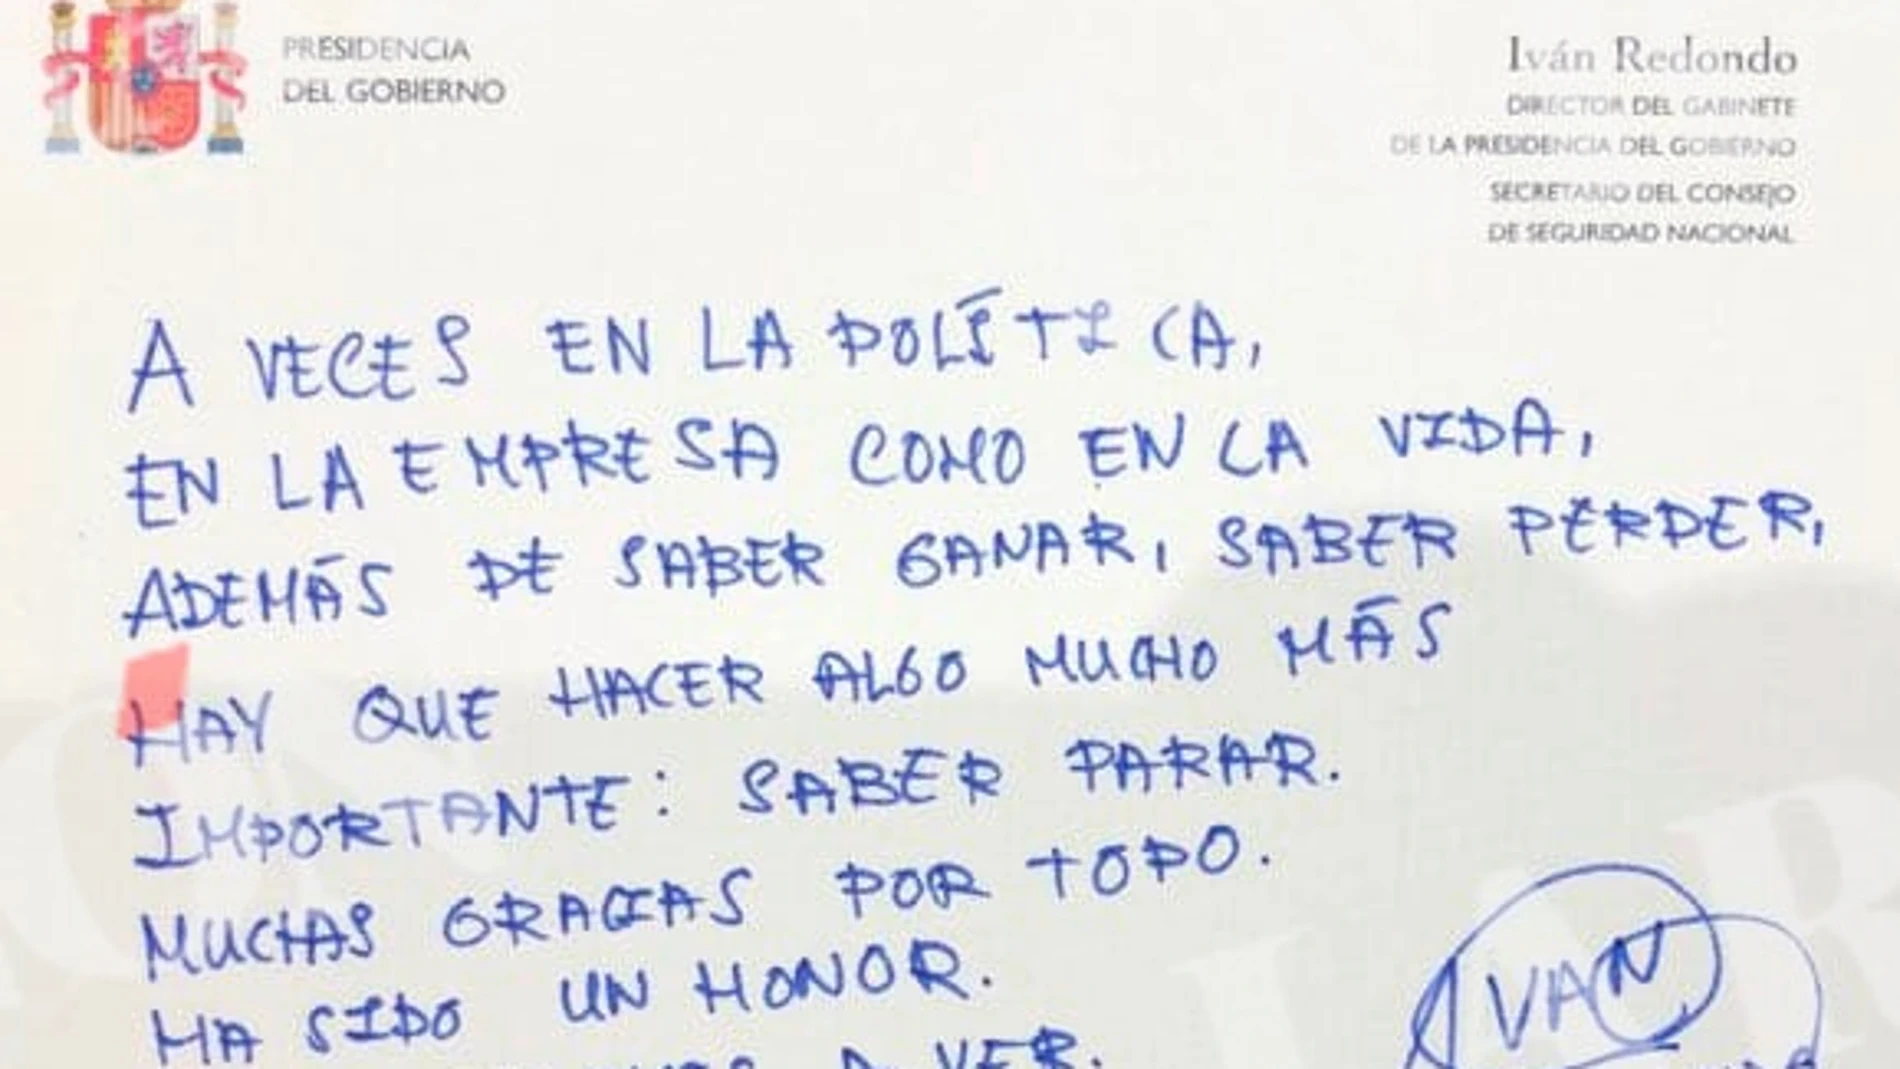 PRESIDENCIA
DEL GOBIERNO
Iván Redondo
DIRECTOR DEL GABINETE
DE LA PRESIDENCIA DEL GOBIERNO
SECRETARIO DEL CONSEJO
DE SEGURIDAD NACIONAL
A VECES EN LA POLÍTICA,
EN LA EMPRESA COMO EN LA VIDA,
ADEMÁS DE SABER GANAR, SABER PERDER,
HAY QUE HACER ALGO MUCHO MÁS
IMPORTANTE: SABER PARAR.
MUCHAS GRACIAS POR TODO.
HA SIDO UN HONOR.
A VER.
IVAN